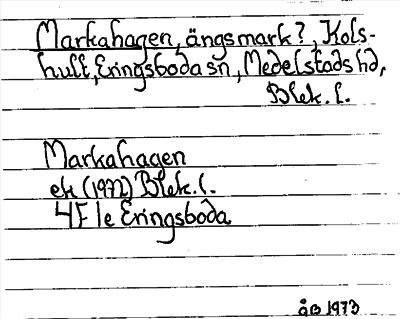 Markahagen, ängsmark?, Kols-
hult, Eringsboda sn, Medelstads hd,
Blek. l.
Markahagen
ek (1972) Blek. l.
4F 1e Eringsboda
åb 1973